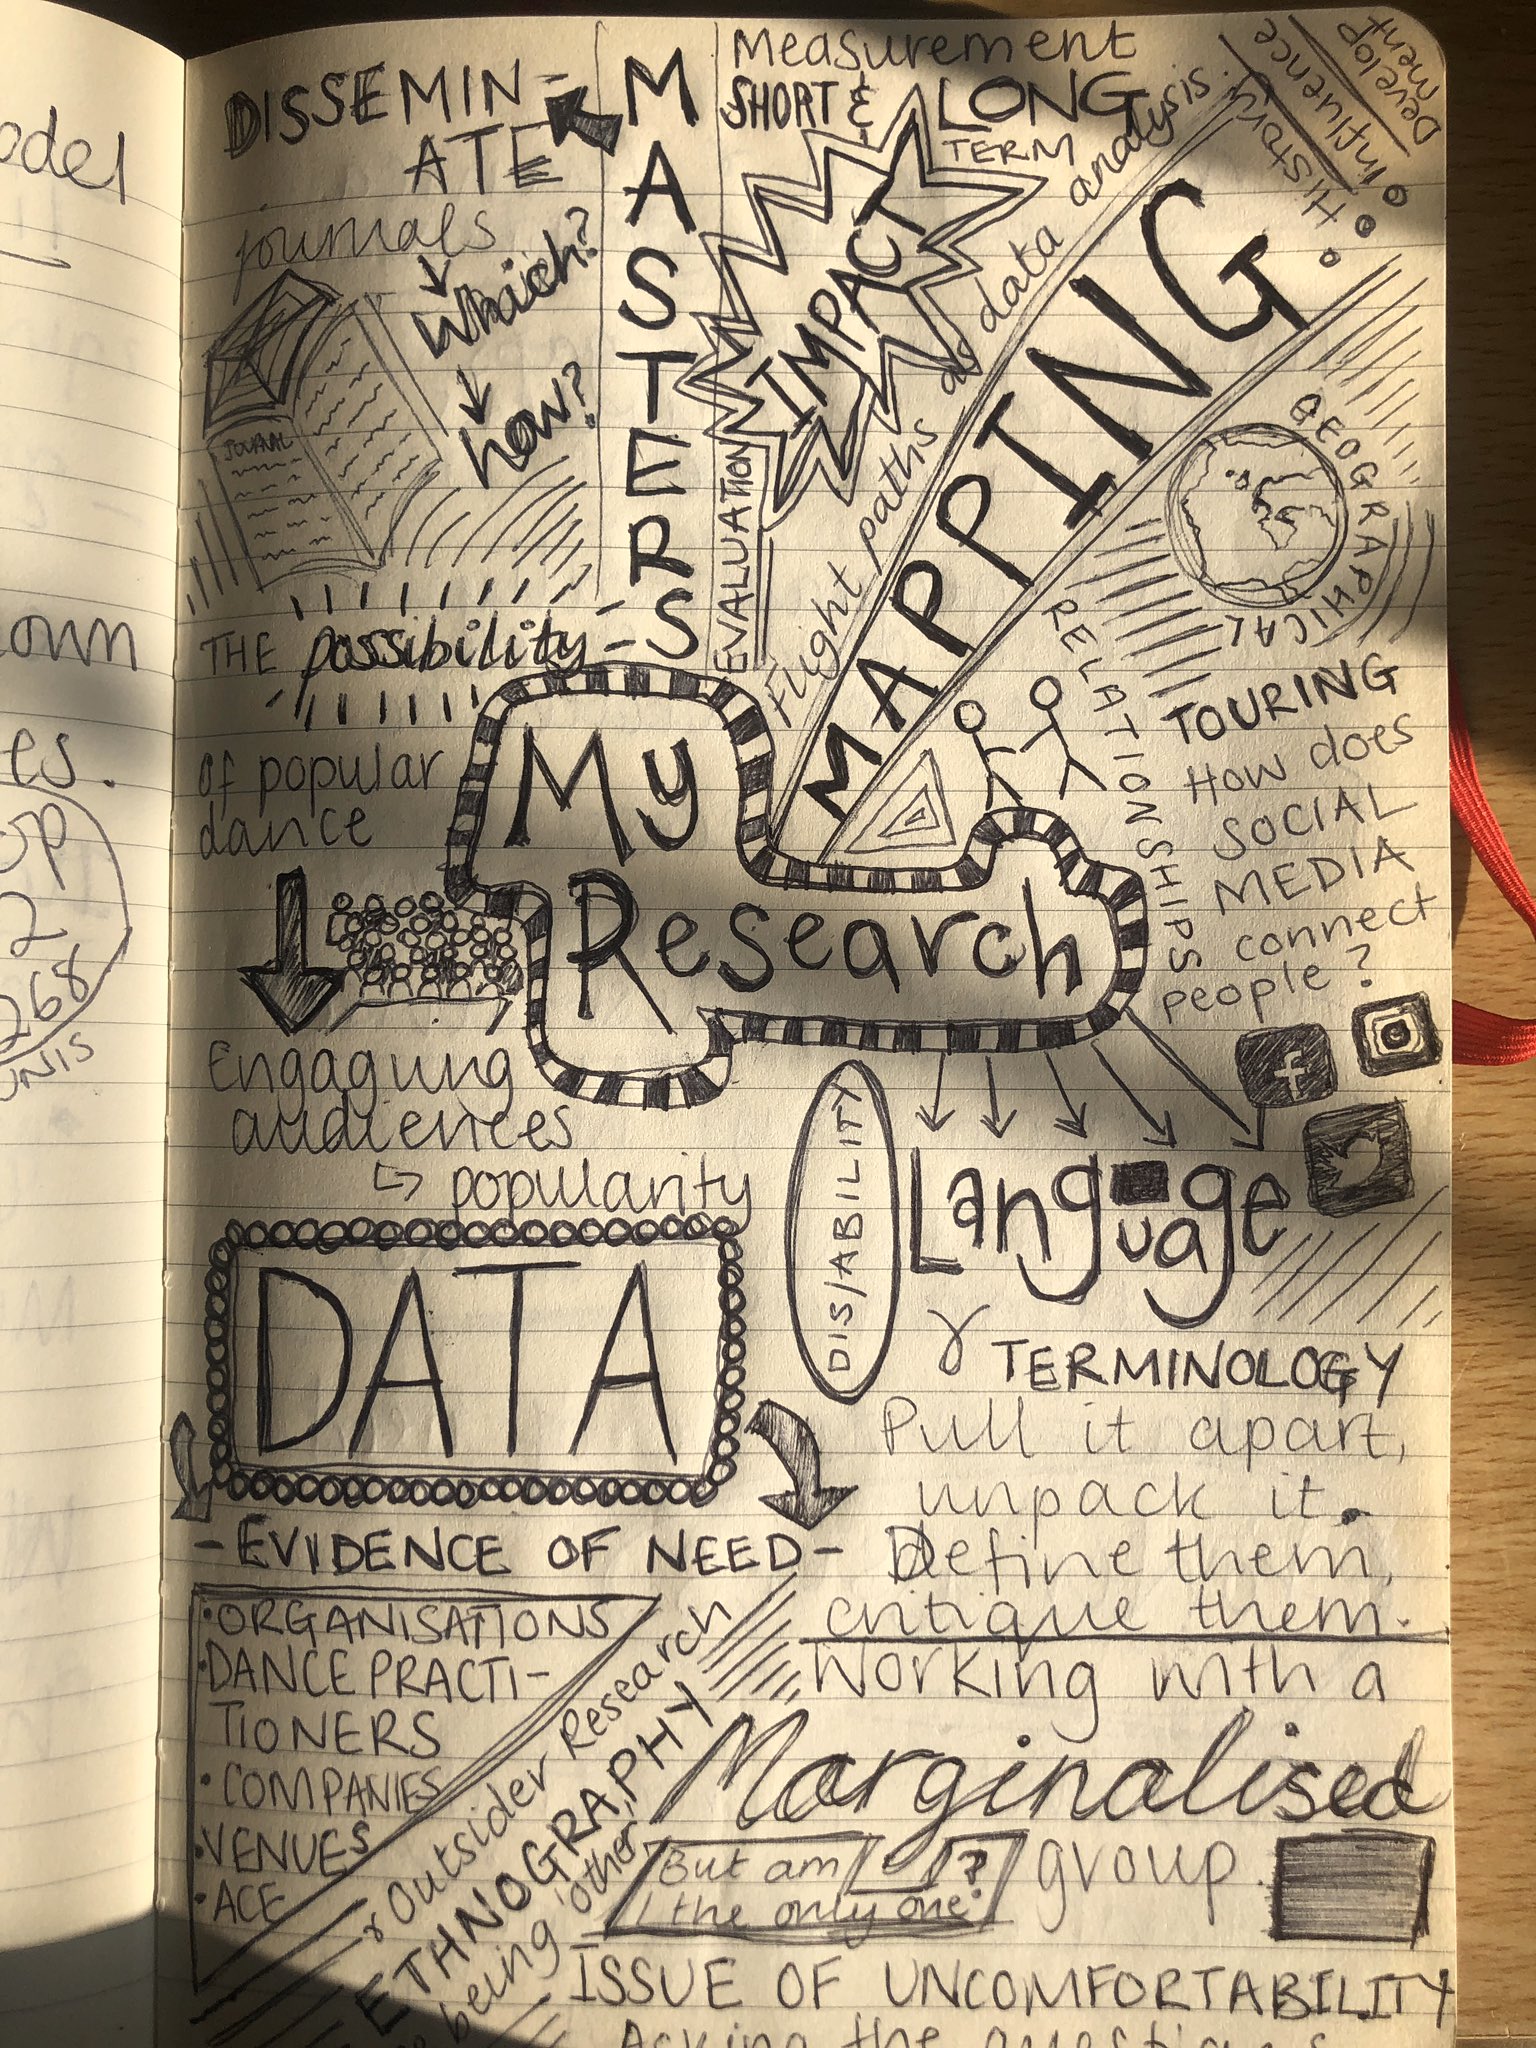 odel
own
es.
op
2
268
UNIS
DISSEMIN-
ATE
journals
Which?
how?
JOURNAL
MASTERS
Measurement
SHORT & LONG
TERM
IMPACT
EVALUATION
flight paths as data analysis.
MAPPING
• History
• Influence
Develop
ment
GEOGRAPHICAL
RELATIONSHIPS
TOURING
How does
SOCIAL
MEDIA
connect
people?
f
THE possibility-
of popular
dance
My
Research
Engaging
audiences
↳ popularity
DIS/ABILITY
Language
& TERMINOLOGY
Pull it apart,
unpack it.
Define them,
critique them.
DATA
-EVIDENCE OF NEED-
• ORGANISATIONS
• DANCE PRACTI-
TIONERS
• COMPANIES
• VENUES
• ACE
& Outsider Research
ETHNOGRAPHY
being 'other'
Working with a
Marginalised
group.
But am
I the only one?
ISSUE OF UNCOMFORTABILITY
Asking the questions